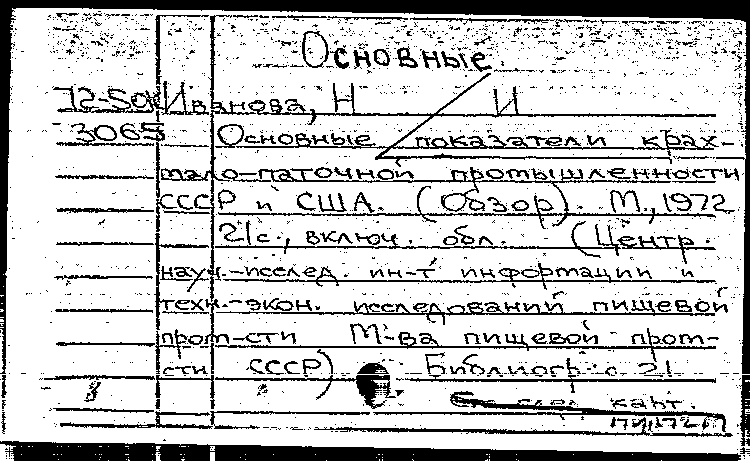 Основные
72-50 Иванова, Н И
3065 Основные показатели крах-
мало-паточной промышленности
СССР и США. (Обзор). М., 1972
21с., включ. обл. (Центр.
науч.-исслед. ин-т информации и
техн.-экон. исследований пищевой
пром-сти М-ва пищевой пром-
сти СССР) Библиогр.: с. 21
карт.